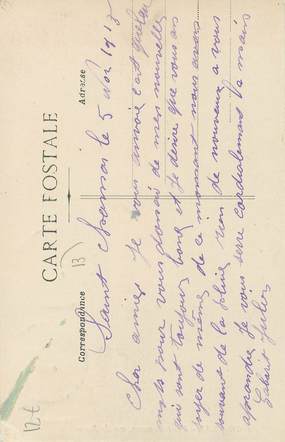 CARTE POSTALE
Correspondance
Adresse
13
Saint Chamas le 5 Nov 1917
Cher amies Je vous envoie c'est quelque
mots pour vous donnai de mes nouvelles
qui sont toujour bone et je désire que vous en
soyer de même de ce moment nous avons
souvent de la pluie rien de nouveaux a vous
aprendre je vous serre cordialement la main
Jules